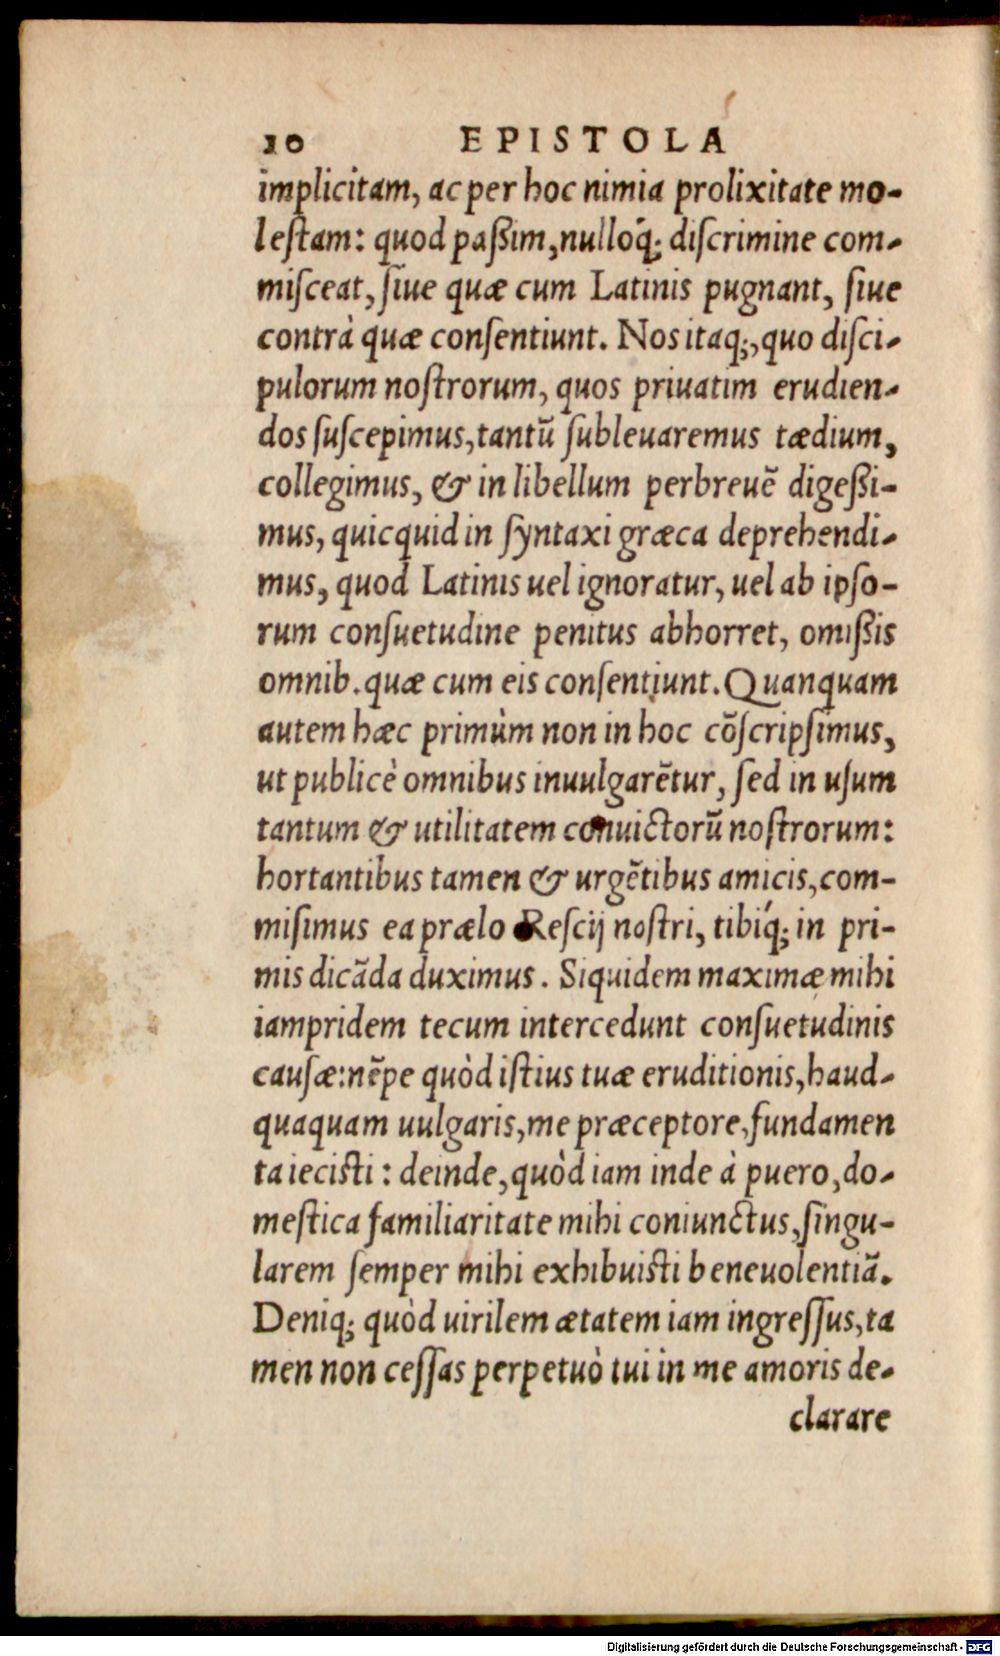 10 EPISTOLA
implicitam, ac per hoc nimia prolixitate mo-
lestam: quod paßim, nulloq́; discrimine com-
misceat, siue quæ cum Latinis pugnant, siue
contrà quæ consentiunt. Nos itaq;, quo disci-
pulorum nostrorum, quos priuatim erudien-
dos suscepimus, tantũ subleuaremus tædium,
collegimus, & in libellum perbreuẽ digeßi-
mus, quicquid in syntaxi græca deprehendi-
mus, quod Latinis uel ignoratur, uel ab ipso-
rum consuetudine penitus abhorret, omißis
omnib. quæ cum eis consentiunt. Quanquam
autem hæc primùm non in hoc cõscripsimus,
ut publicè omnibus inuulgarẽtur, sed in usum
tantum & utilitatem conuictorũ nostrorum:
hortantibus tamen & urgẽtibus amicis, com-
misimus ea prælo Rescij nostri, tibiq́; in pri-
mis dicãda duximus. Siquidem maximæ mihi
iampridem tecum intercedunt consuetudinis
causæ: nẽpe quòd istius tuæ eruditionis, haud-
quaquam uulgaris, me præceptore, fundamen
ta iecisti: deinde, quòd iam inde à puero, do-
mestica familiaritate mihi coniunctus, singu-
larem semper mihi exhibuisti beneuolentiã.
Deniq; quòd uirilem ætatem iam ingressus, ta
men non cessas perpetuò tui in me amoris de-
clarare
Digitalisierung gefördert durch die Deutsche Forschungsgemeinschaft - DFG